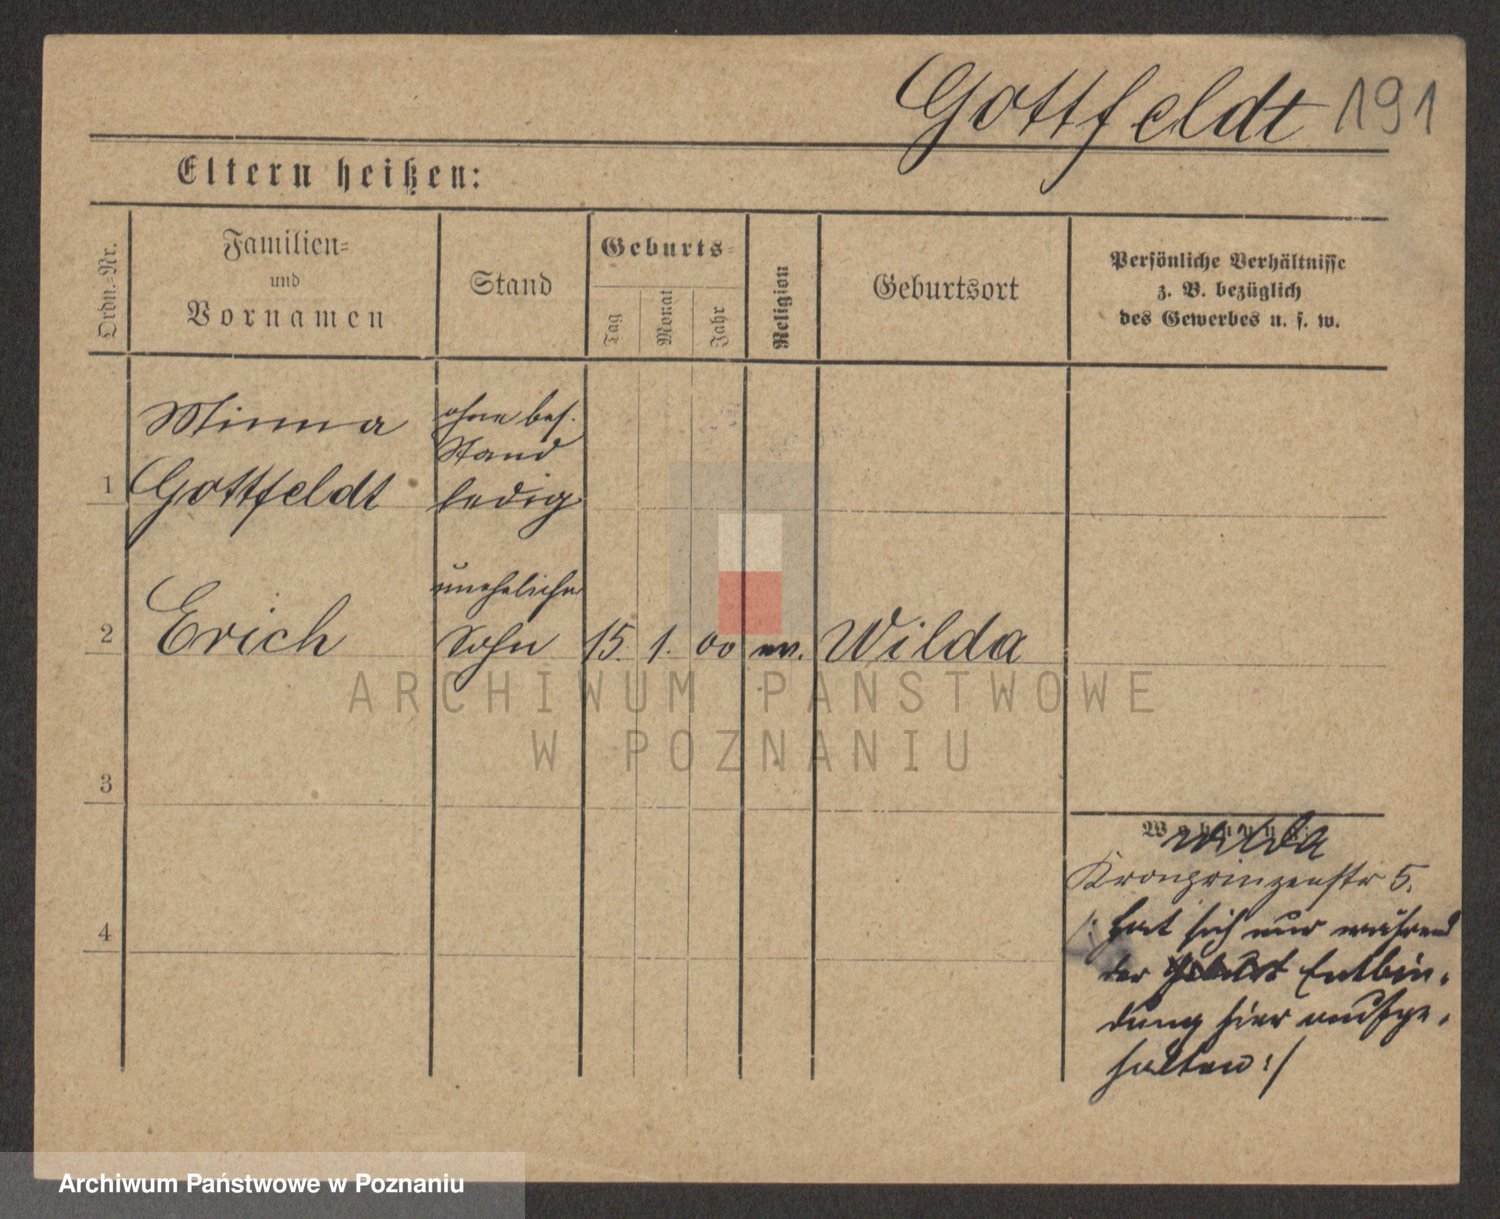 Gottfeldt 191
Eltern heißen:
Ordn.-Nr.
Familien-
und
Vornamen
Stand
Geburts-
Tag
Monat
Jahr
Religion
Geburtsort
Persönliche Verhältnisse
z. B. bezüglich
des Gewerbes u. s. w.
Minna
Gottfeldt
ohne bes.
Stand
ledig
1
2
Erich
uneheliche
Sohn
15. 1. 00 ev. Wilda
3
4
Wohnung:
Wilda
Kronprinzenstr 5.
/: hat sich nur während
der Geburt Entbin-
dung hier aufge-
halten :/
ARCHIWUM PAŃSTWOWE
W POZNANIU
Archiwum Państwowe w Poznaniu